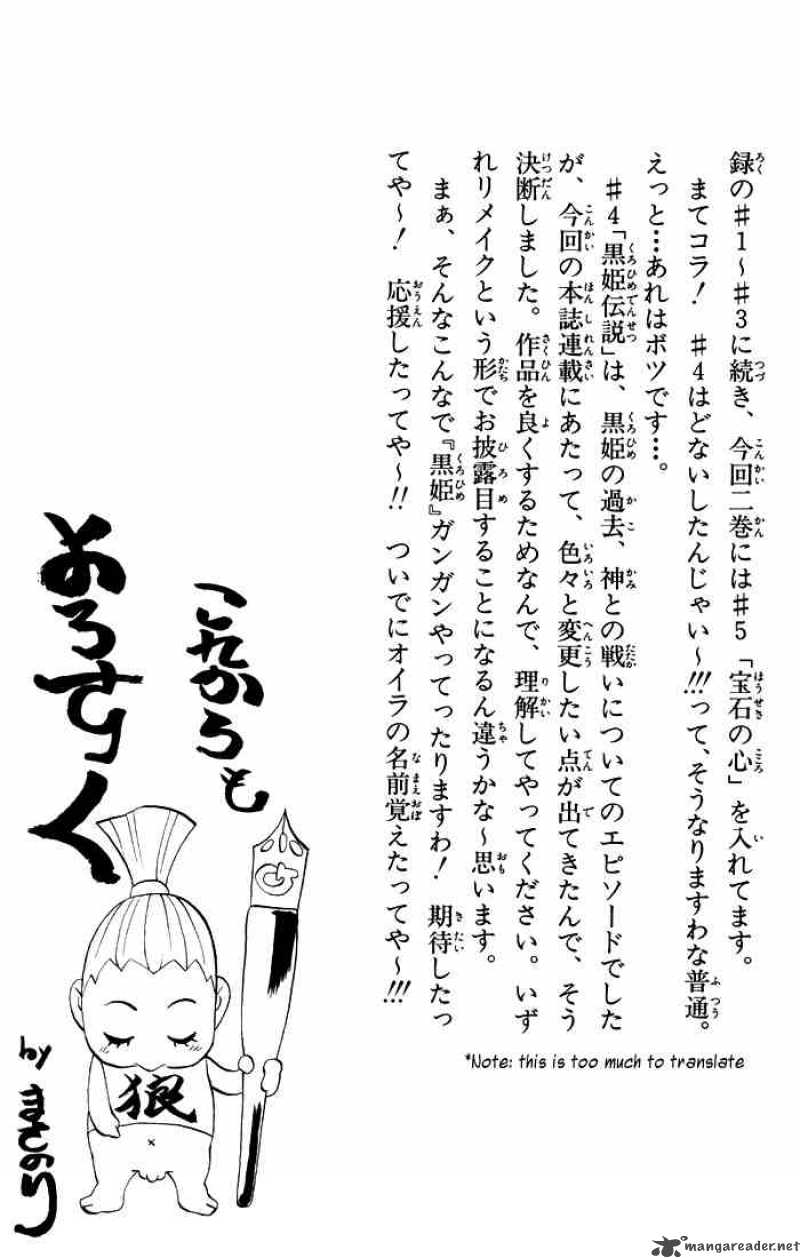 録の#1〜#3に続き、今回二巻には#5「宝石の心」を入れてます。
まてコラ! #4はどないしたんじゃい〜!!!って、そうなりますわな普通。
えっと…あれはボツです…。
#4「黒姫伝説」は、黒姫の過去、神との戦いについてのエピソードでした
が、今回の本誌連載にあたって、色々と変更したい点が出てきたんで、そう
決断しました。作品を良くするためなんで、理解してやってください。いず
れリメイクという形でお披露目することになるん違うかな〜思います。
まぁ、そんなこんなで『黒姫』ガンガンやってったりますわ! 期待したっ
てや〜! 応援したってや〜!! ついでにオイラの名前覚えたってや〜!!!
*Note: this is too much to translate
これからも
よろすぃく
狼
by まさのり
mangareader.net